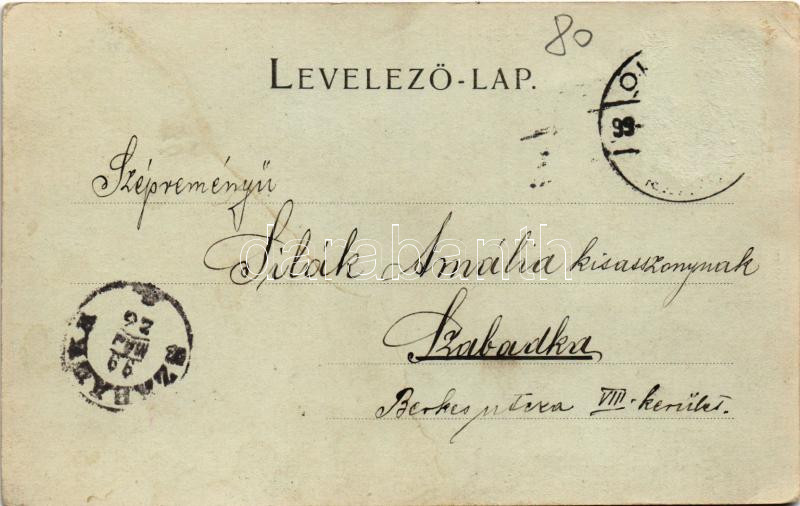 80
LEVELEZŐ-LAP.
99
Szépreményű
Siták Amália kisasszonynak
Szabadka
Berkes utcza VIII. kerület.
SZABADKA
99
26
darabanth